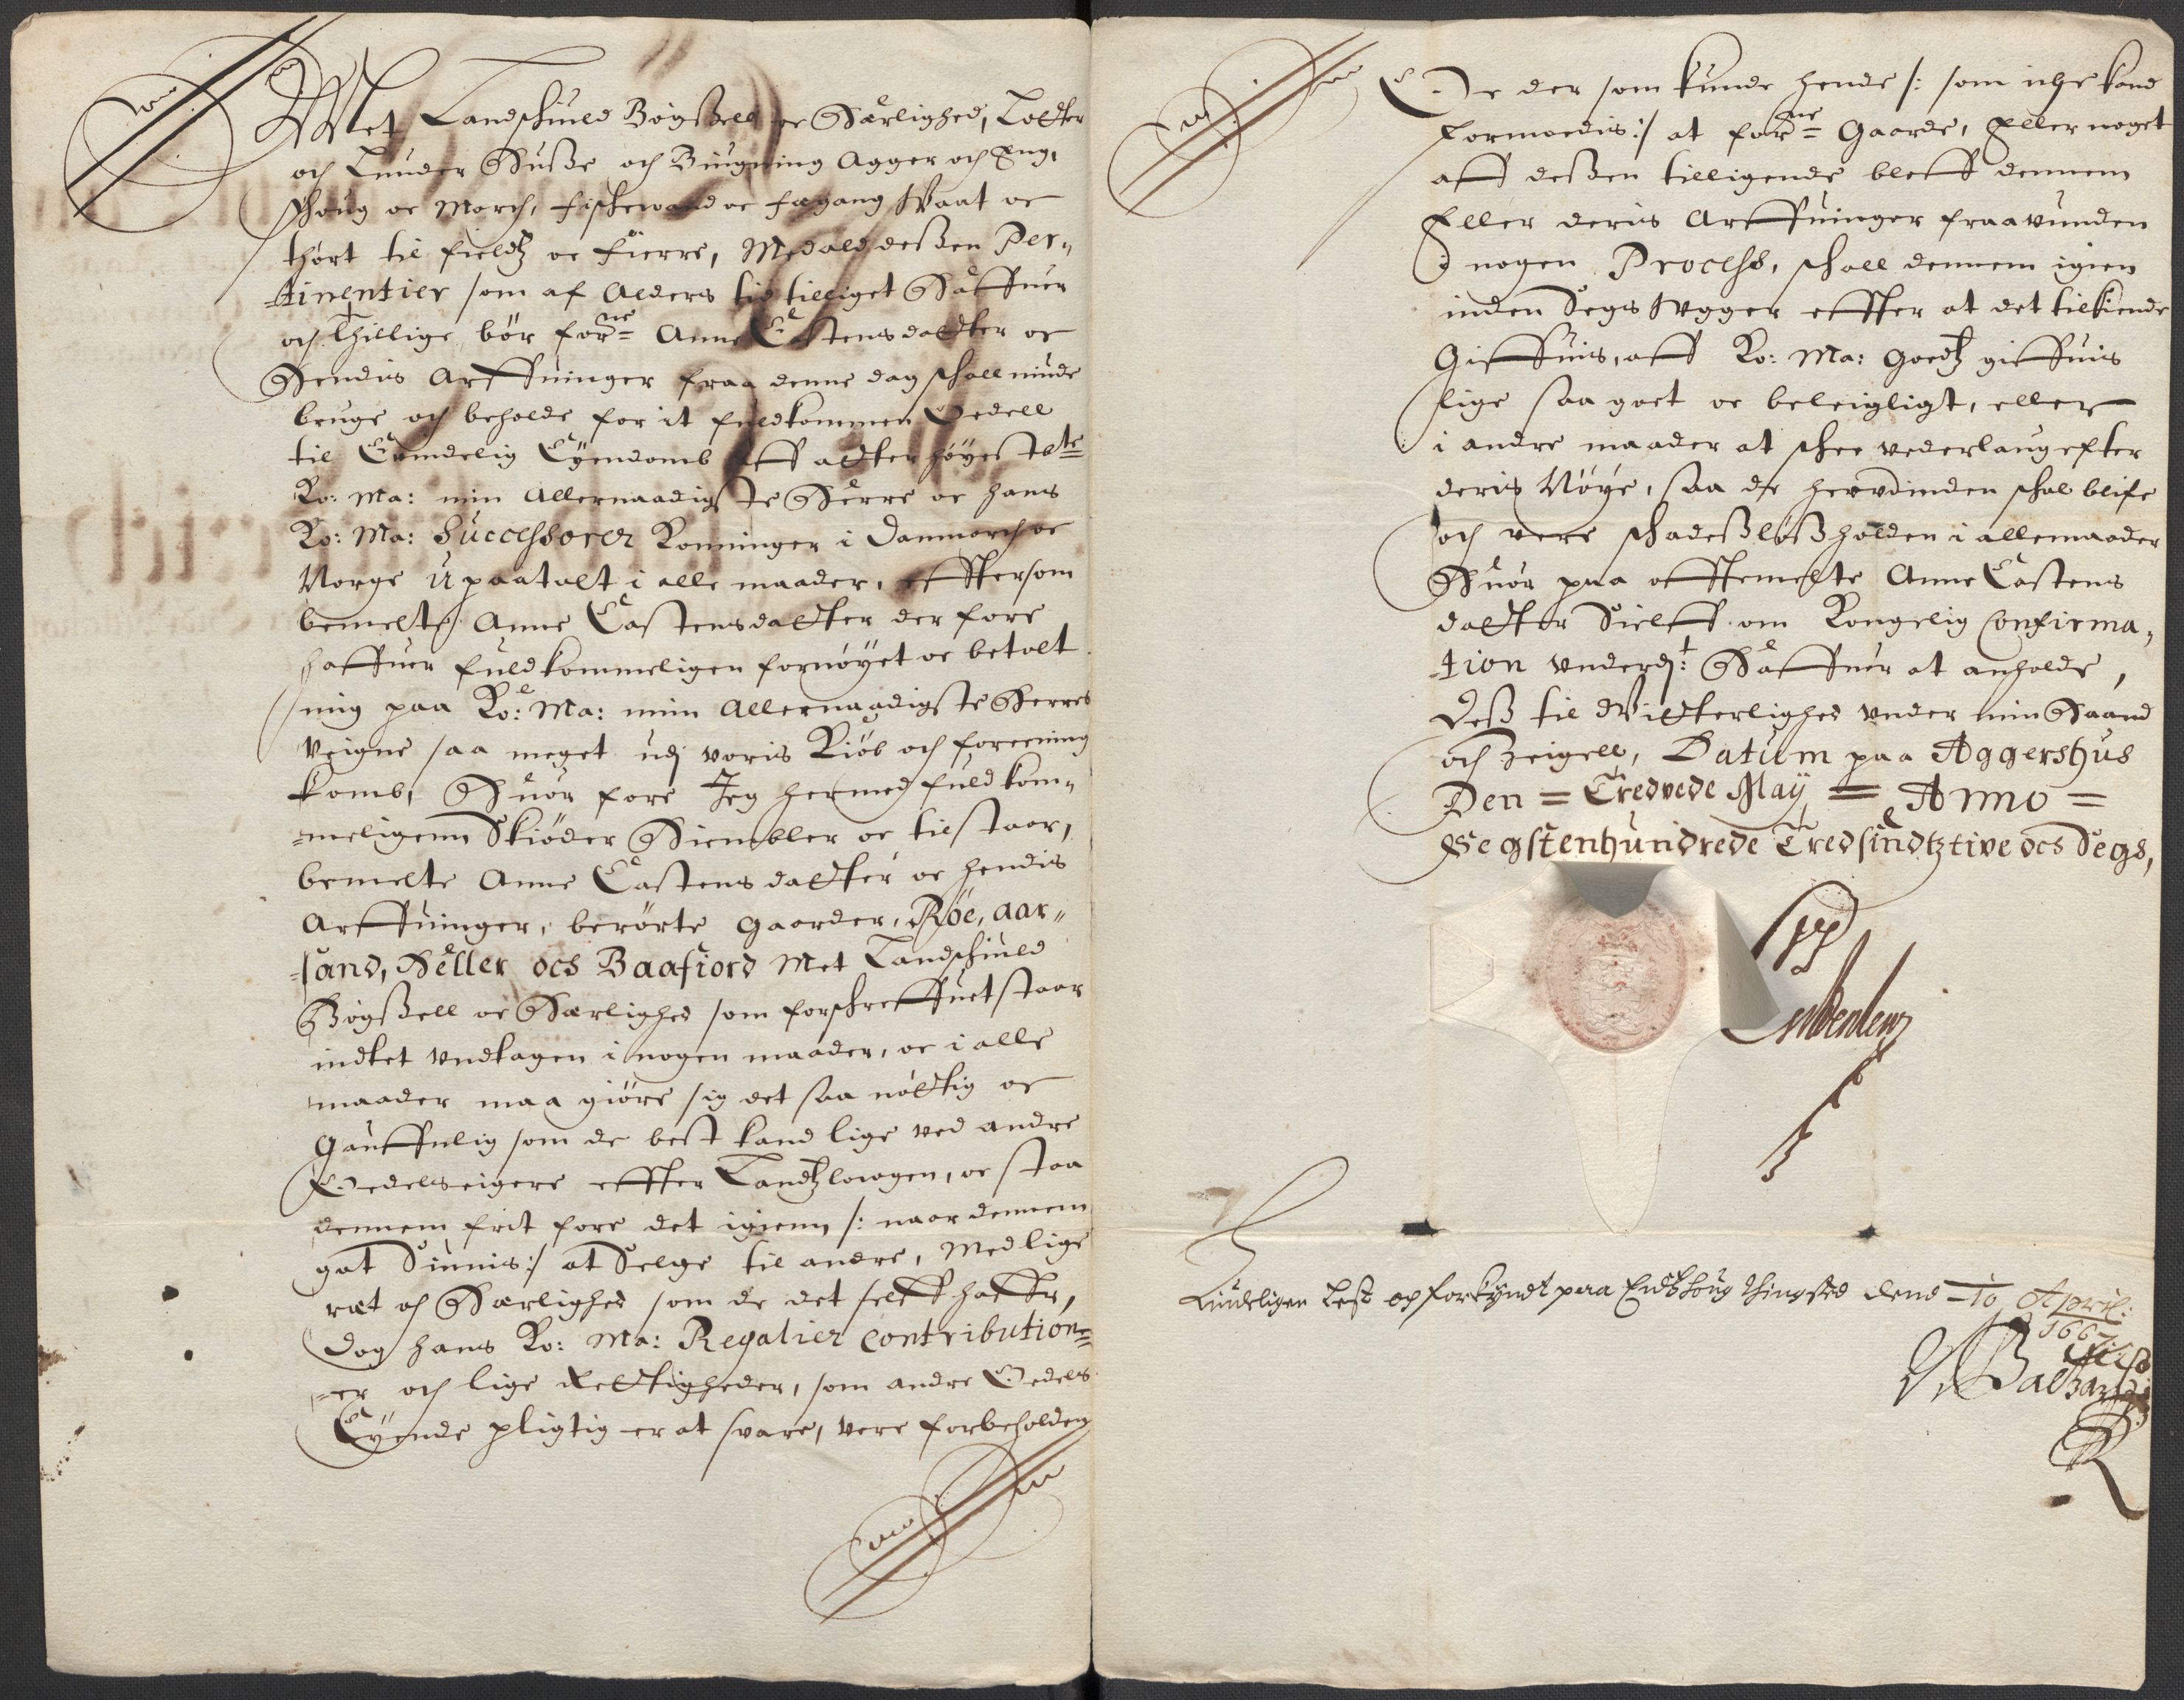 Met Landschuld Bögßell oc Herlighed, Lotter
och Lunder Huße och Biugning Agger och Eng,
Schoug oc March, fischevand oc fægang Vaat oc
thört til fieldtz oc fierre, Med ald deßen Per„
-tinentier som af Alders tid tilliget Haffuer
och thillige bör forne Anne Castensdaatter oc
Hendis Arffuinger fraa denne dag schall niude
bruge och beholde for it fuldkommen Oedell
til Evindelig Eyendomb aff aller höyestbte
Ko: Ma: min Allernaadigste Herre oc hans
Ko: Ma: Successorer Konninger i Danmarch oc
Norge upaatalt i alle maader, effttersom
bemelte Anne Castensdaatter der fore
haffuer fuldkommeligen fornöyet oc betalt
mig paa Ko: Ma: min Allernaadigste Herres
Veigne saa meget udj voris Kiöb och foreening
komb, Huor fore Jeg hermed fuldkom„
-meligenn Skiöder Hiembler oc tilstaar,
bemelte Anne Castensdaatter oc hendis
Arffuinger, berörte Gaarder, Röe, Aar„
-sand, Heller och Baafiord Met Landschuld
Bögßell oc Herlighed som forschreffuet staar
indtet undtagen i nogen maader, oc i alle
maader maa giöre sig det saa nöttig oc
Gauffnlig som de best kand lige ved andre
Oedelseigere effter Landtzlowgen, oc staa
dennem frit fore det igienn /: naar dennem
got Siunis :/ at Selge til andre, Med lige
ræt och Herlighed som de det selff haffr,
Dog hans Ko: Ma: Regalier Contribution=
-er och lige Rettigheder, som andre Oedels
Eyende pligtig er at svare, vere forbeholden
Oc der som kunde hende /: som iche kand
formoedis :/ at forne Gaarde, Eller noget
aff deßen tilligende bleff dennem
Eller deris Arffuinger fraavunden
i nogen Process, schall dennem igien
inden Segs Ugger effter at det tilkiende
Giffuis, aff Ko: Ma: Goedtz giffuis
lige saa goet oc beleigligt, eller
i andre maader at schee vederlaug efter
deris Nöye, saa de herudinden schal blife
och vere schadeßlöß holden i allemaader
Huor paa offttemelte Anne Castens
daatter Sielff om Kongelig Confirma„
-tion underd:t Haffuer at anholde,
Deß til Vitterlighed under min Haand
och Zeigell, Datum paa Aggershus
Den = Tredvede May = Anno =
Segstenhundrede Tredsindtztive och Segs,
Liudeligen Lest op forkyndt paa thingsted dend 10 April:
1667.